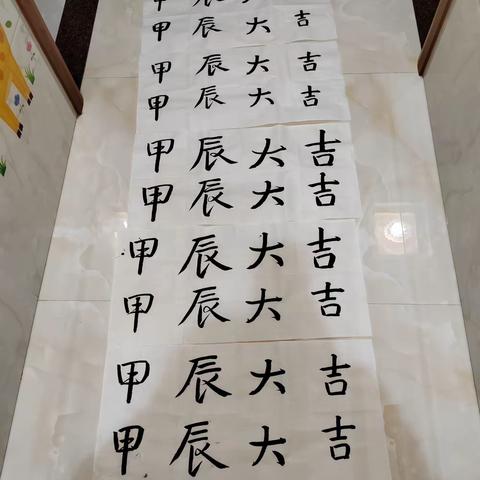 甲辰大吉
甲辰大吉
甲辰大吉
甲辰大吉
甲辰大吉
甲辰大吉
甲辰大吉
甲辰大吉
甲辰大吉